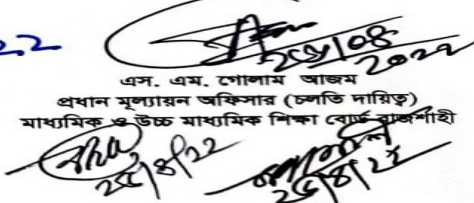 ২২
২৫/০৪
২০২২
এস. এম. গোলাম আজম
প্রধান মূল্যায়ন অফিসার (চলতি দায়িত্ব)
মাধ্যমিক ও উচ্চ মাধ্যমিক শিক্ষা বোর্ড রাজশাহী
২৫/৪/২২
২৫/৪/২২